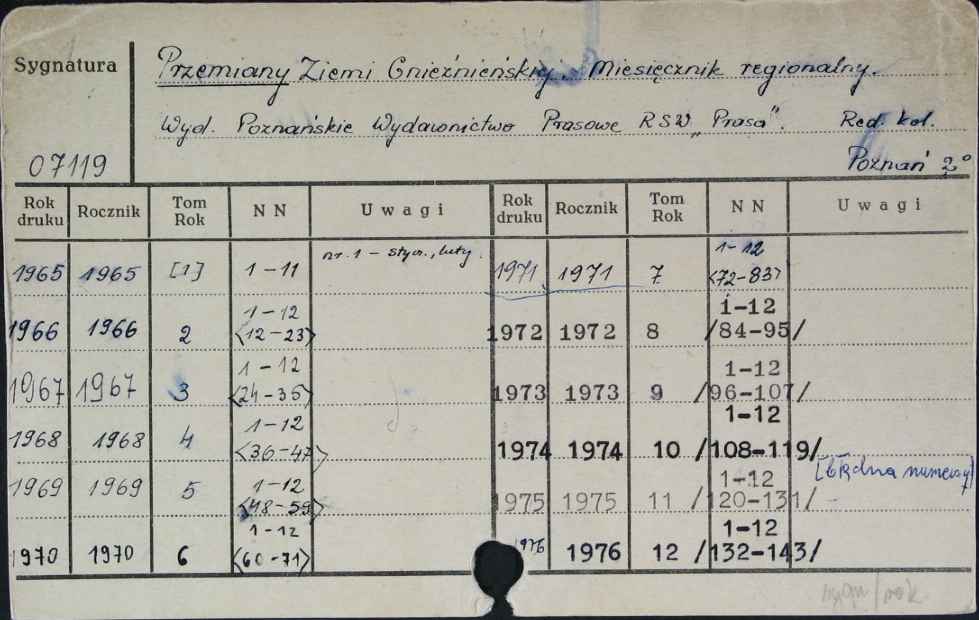 Sygnatura
Przemiany Ziemi Gnieźnieńskiej. Miesięcznik regionalny.
Wyd. Poznańskie Wydawnictwo Prasowe RSW „Prasa". Red. kol.
07119 Poznań 2°
Rok druku Rocznik Tom Rok NN Uwagi Rok druku Rocznik Tom Rok NN Uwagi
1965 1965 [1] 1-11 nr. 1 - stycz., luty. 1971 1971 7 1-12 <72-83>
1966 1966 2 1-12 <12-23> 1972 1972 8 1-12 /84-95/
1967 1967 3 1-12 <24-35> 1973 1973 9 1-12 /96-107/
1968 1968 4 1-12 <36-47> 1974 1974 10 1-12 /108-119/
1969 1969 5 1-12 <48-59> 1975 1975 11 1-12 /120-131/ [błędna numeracja]
1970 1970 6 1-12 <60-71> 1976 1976 12 1-12 /132-143/
rok